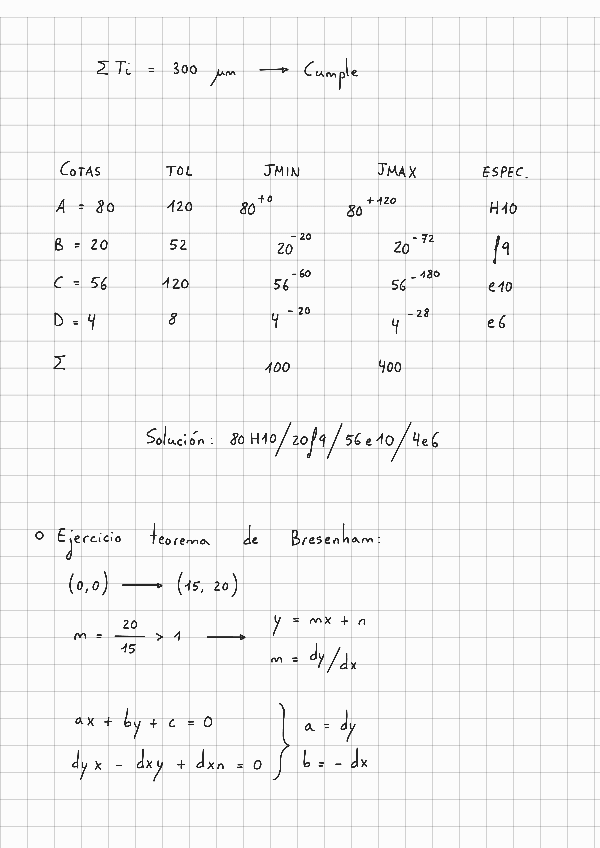 Σ Ti = 300 μm → Cumple
COTAS TOL JMIN JMAX ESPEC.
A = 80 120 80⁺⁰ 80⁺¹²⁰ H10
B = 20 52 20⁻²⁰ 20⁻⁷² f9
C = 56 120 56⁻⁶⁰ 56⁻¹⁸⁰ e10
D = 4 8 4⁻²⁰ 4⁻²⁸ e6
Σ 100 400
Solución: 80 H10/20f9/56e10/4e6
o Ejercicio teorema de Bresenham:
(0,0) → (15, 20)
m = 20/15 > 1 → y = mx + n
m = dy/dx
ax + by + c = 0 } a = dy
dyx - dxy + dxn = 0 } b = - dx